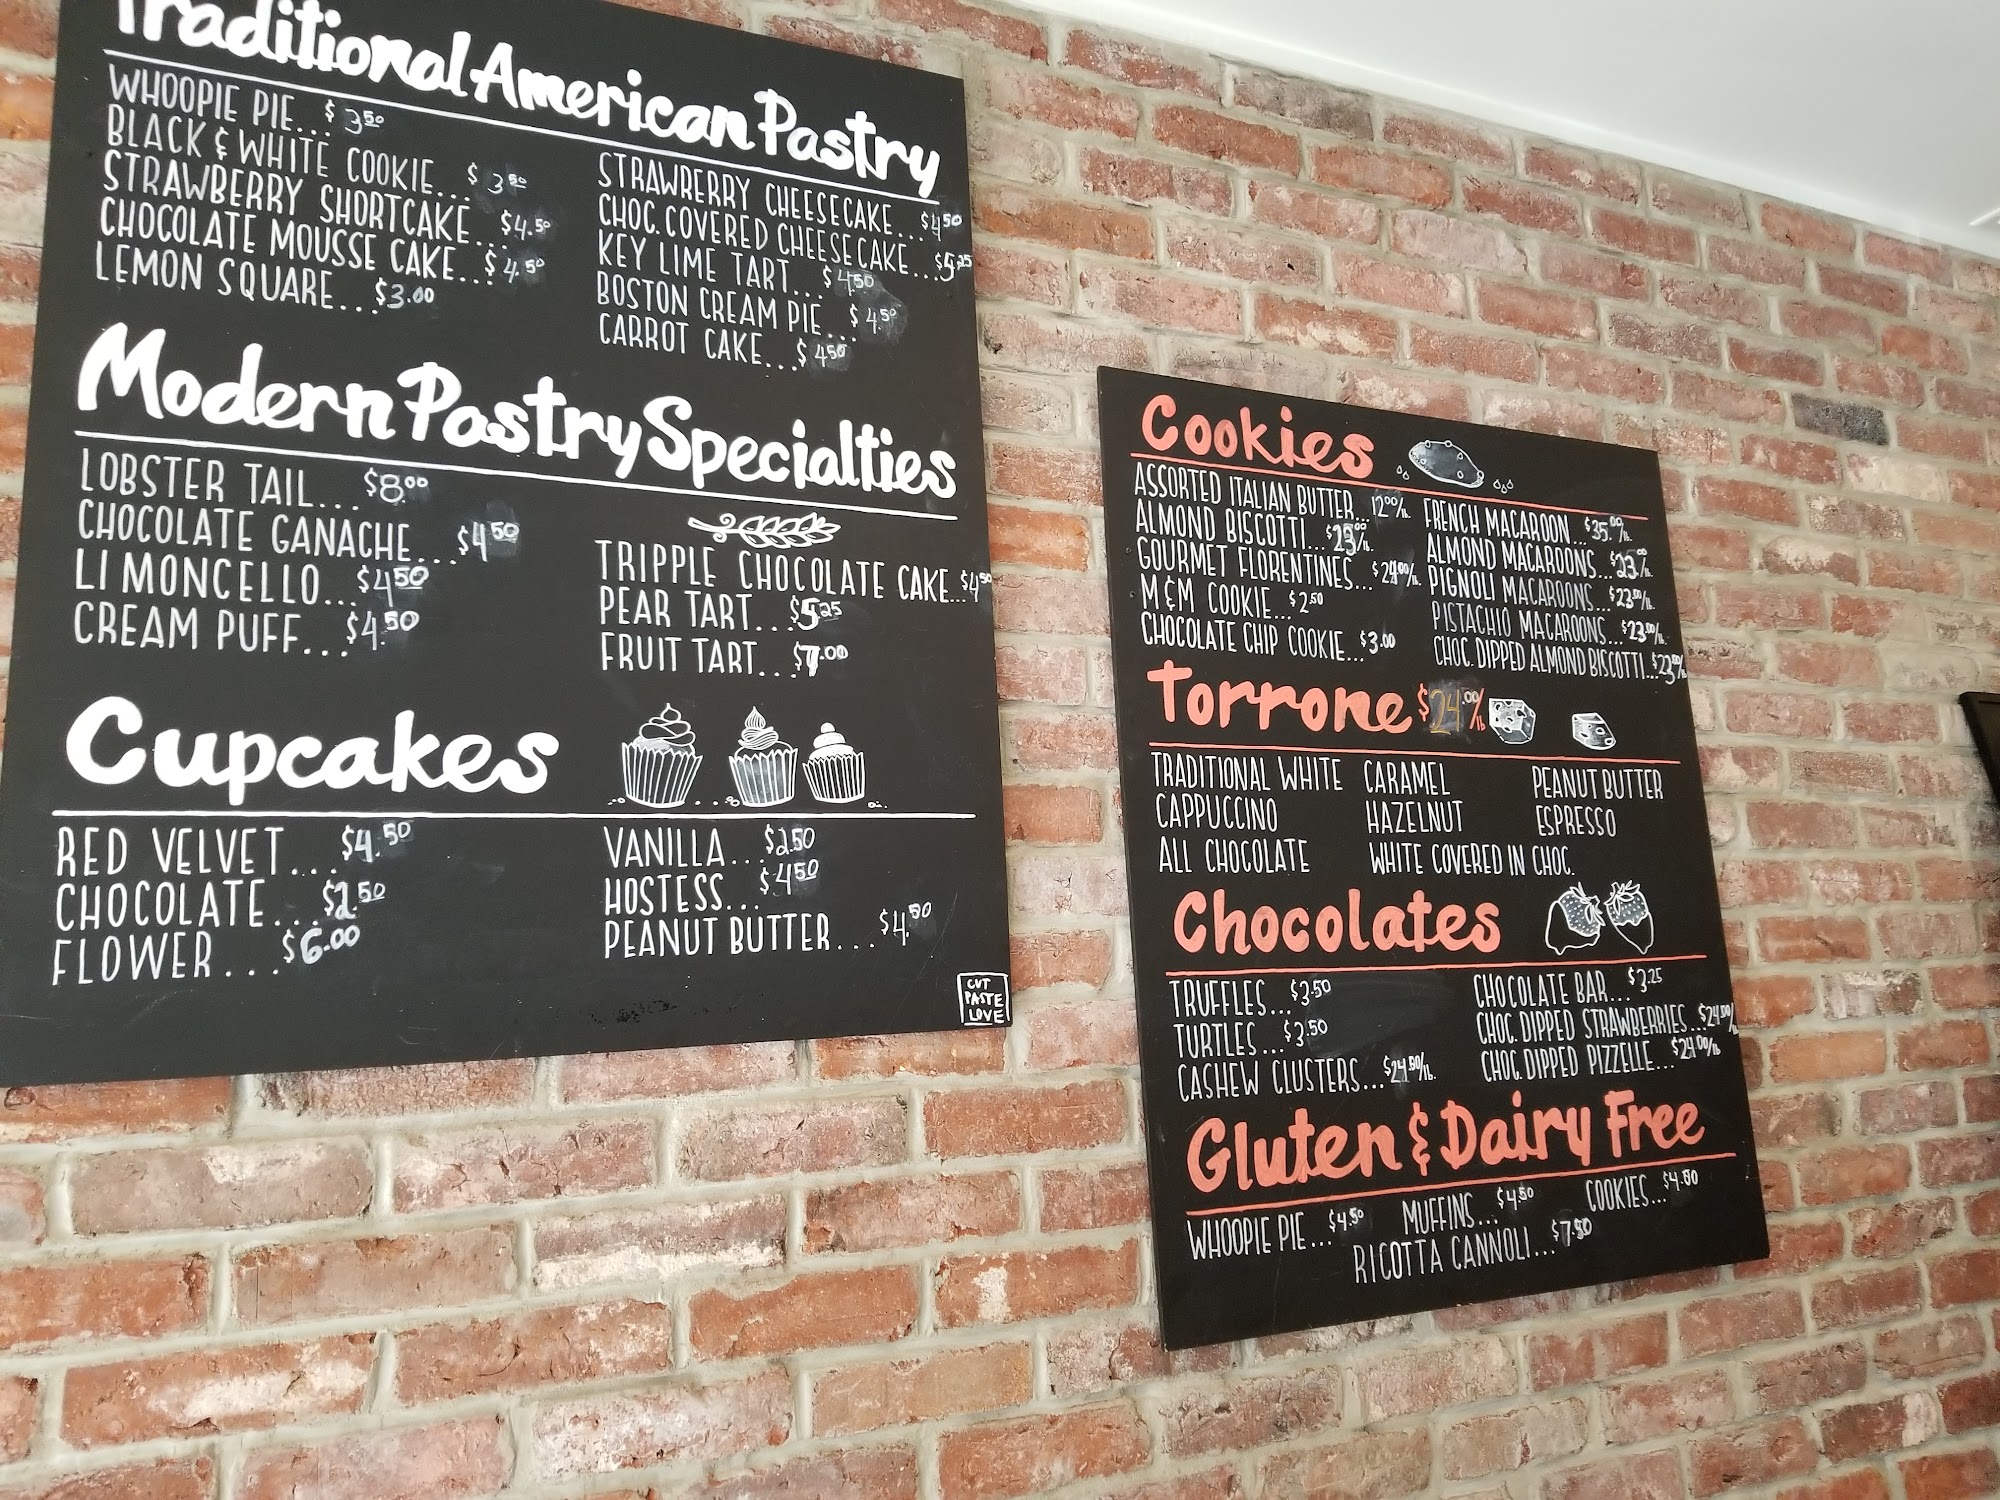 Traditional American Pastry
WHOOPIE PIE... $3.50
BLACK & WHITE COOKIE... $3.50
STRAWBERRY SHORTCAKE... $4.50
CHOCOLATE MOUSSE CAKE... $4.50
LEMON SQUARE... $3.00
STRAWBERRY CHEESECAKE... $4.50
CHOC. COVERED CHEESECAKE... $5.25
KEY LIME TART... $4.50
BOSTON CREAM PIE... $4.50
CARROT CAKE... $4.50
Modern Pastry Specialties
LOBSTER TAIL... $8.00
CHOCOLATE GANACHE... $4.50
LIMONCELLO... $4.50
CREAM PUFF... $4.50
TRIPPLE CHOCOLATE CAKE... $4.50
PEAR TART... $5.25
FRUIT TART... $7.00
Cupcakes
RED VELVET... $4.50
CHOCOLATE... $2.50
FLOWER... $6.00
VANILLA... $2.50
HOSTESS... $4.50
PEANUT BUTTER... $4.50
CUT
PASTE
LOVE
Cookies
ASSORTED ITALIAN BUTTER... 12.00/lb.
ALMOND BISCOTTI... $23.00/lb.
GOURMET FLORENTINES... $24.00/lb.
M&M COOKIE... $2.50
CHOCOLATE CHIP COOKIE... $3.00
FRENCH MACAROON... $35.00/lb.
ALMOND MACAROONS... $23.00/lb.
PIGNOLI MACAROONS... $23.00/lb.
PISTACHIO MACAROONS... $23.00/lb.
CHOC. DIPPED ALMOND BISCOTTI... $23.50/lb
Torrone $24.00/lb
TRADITIONAL WHITE CARAMEL PEANUT BUTTER
CAPPUCCINO HAZELNUT ESPRESSO
ALL CHOCOLATE WHITE COVERED IN CHOC.
Chocolates
TRUFFLES... $3.50
TURTLES... $3.50
CASHEW CLUSTERS... $24.50/lb.
CHOCOLATE BAR... $3.25
CHOC. DIPPED STRAWBERRIES... $24.50/
CHOC. DIPPED PIZZELLE... $24.00/lb
Gluten & Dairy Free
WHOOPIE PIE... $4.50 MUFFINS... $4.50 COOKIES...
RICOTTA CANNOLI... $7.50